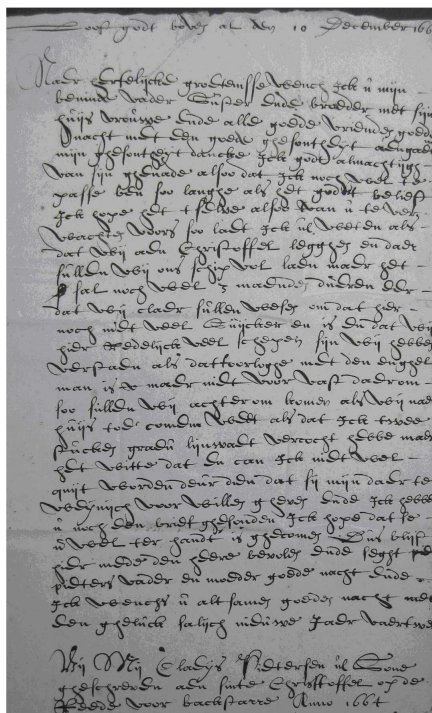 Looft godt boven al den 10 December 1664
Naer hertelijcke groetenisse wench Ick u mijn
beminde vader Suster ende broeder met sijn
huijs vrouwe ende alle goede vrienden goede
nacht met den goede ghesontheijt aengaende
mijn ghesontheijt dancke Ick godt almachtigh
van sijn ghenade alsoo dat Ick noch wel te
passe ben soo langhe als het godt belieft
Ick hope het selve alsoo van u te ver
wachten voors soo laet Ick ul weten als
dat wij aen Christoffel legghen en daer
sullen wij ons schip vol laden maer het
sal noch wel 3 maenden dueren eer
dat wij claer sullen wesen om dat hier
noch niet veel Suijcker en is en dat wij
hier redelijck veel schepen sijn wij hebben
verstaen als dat oorloghe met den enghels
man is maer niet voor vast daerom
soo sullen wij achterom komen als wij nae
huijs toe comen weet als dat Ick twee
stucken graeu lijnwaet vercocht hebbe maer
het witte dat en can Ick niet wel
quijt worden deur dien dat sij mijn daer te
weijnich voor willen gheven ende Ick hebbe
u noch den brief ghesonden Ick hope dat se
u wel ter handt is ghecomen Dus blijft
hier mede den heere bevolen ende seght
pieters vader en moeder goede nacht ende
Ick wensch u alt samen goede nacht met
den gheluck salich nieuwe Jaer vaertwel
Bij Mij Claeijs Pietersen ul Sone
gheschreven aen sinte Christoffel op de
Reede voor backstarre Anno 1664